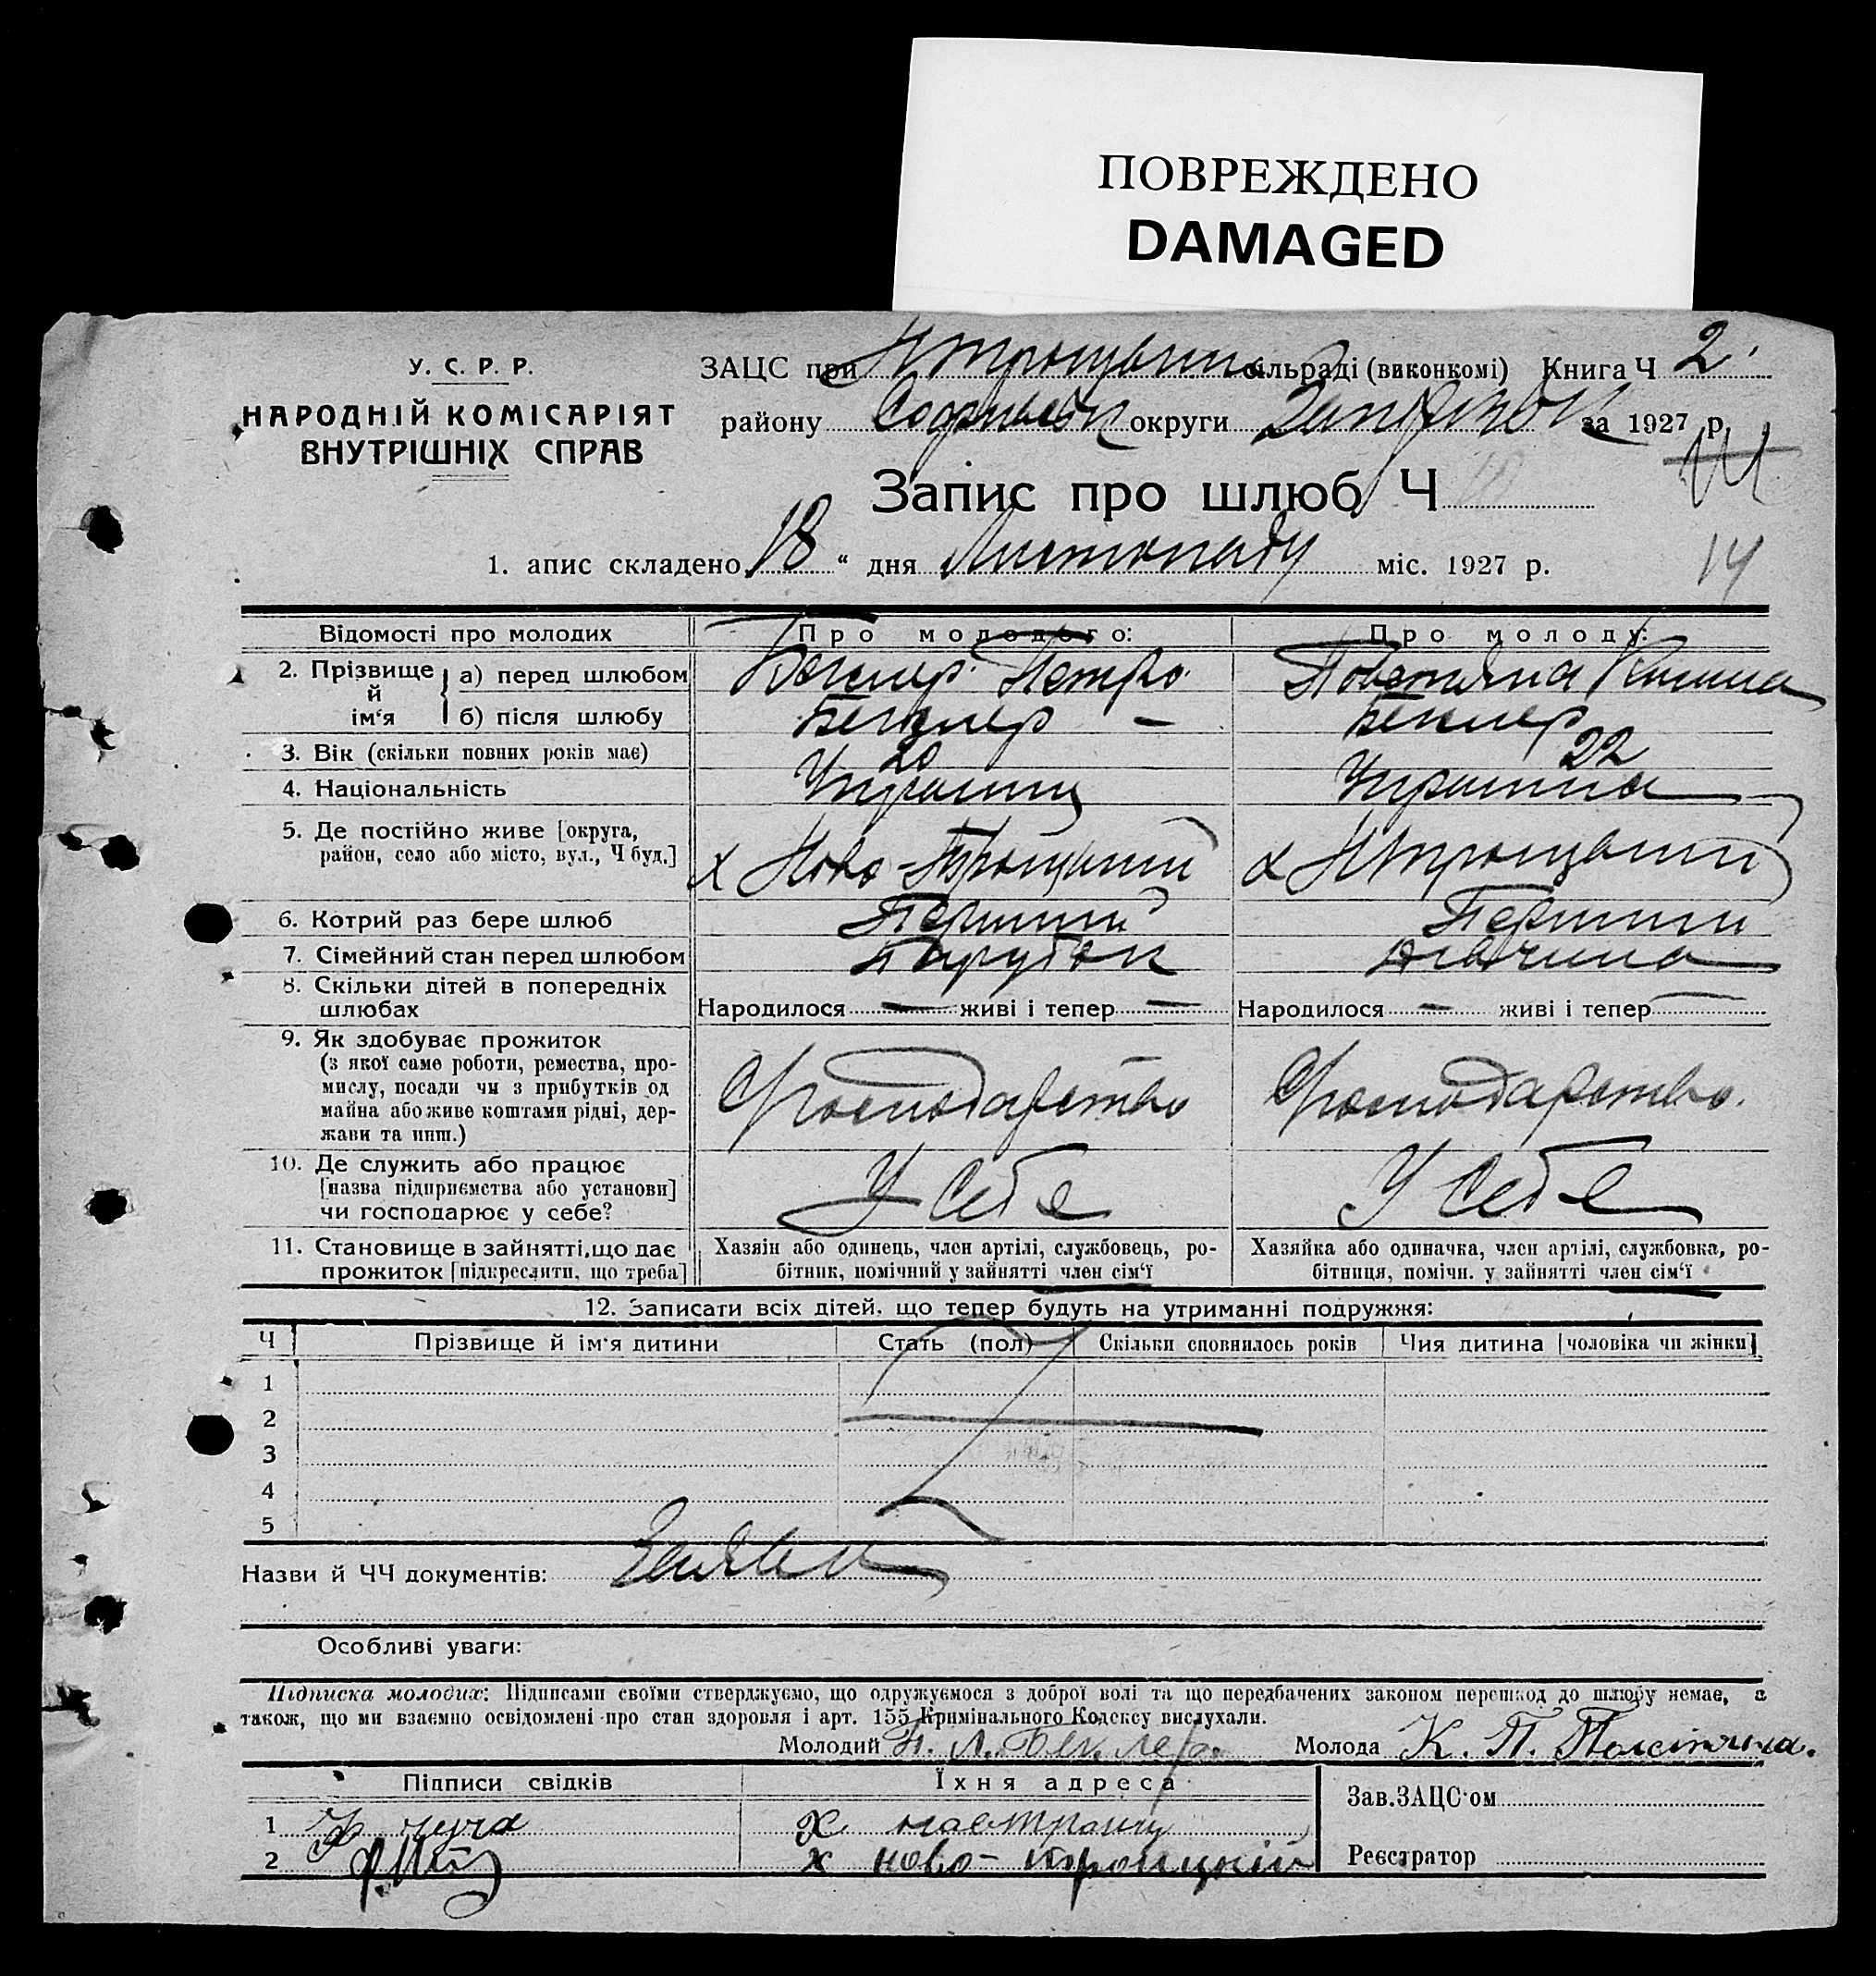 ПОВРЕЖДЕНО
DAMAGED
У. С. Р. Р.
НАРОДНІЙ КОМІСАРІЯТ
ВНУТРІШНІХ СПРАВ
ЗАЦС при сільраді (виконкомі) Книга Ч 2
району округи за 1927 р.
Запис про шлюб Ч
14
1. апис складено 18 “ дня Листопаду міс. 1927 р.
14
Відомості про молодих Про молодого: Про молоду:
2. Прізвище й ім‘я а) перед шлюбом Беклер Петро
б) після шлюбу Беклер – Беклер
3. Вік (скільки повних років має) 20 22
4. Національність Українц Українка
5. Де постійно живе [округа,
район, село або місто, вул., Ч буд.] х Ново-Троцький х НТроцький
6. Котрий раз бере шлюб Перший Перший
7. Сімейний стан перед шлюбом Парубок Дівчина
8. Скільки дітей в попередніх
шлюбах Народилося – живі і тепер – Народилося – живі і тепер –
9. Як здобуває прожиток
(з якої саме роботи, ремества, про-
мислу, посади чи з прибутків од
майна або живе коштами рідні, дер-
жави та инш.)
Господарство Господарство.
10. Де служить або працює
[назва підприємства або установи]
чи господарює у себе?
У себе У себе
11. Становище в зайнятті, що дає
прожиток [підкреслити, що треба]
Хазяін або одинець, член артілі, службовець, ро-
бітник, помічний у зайнятті член сім‘ї
Хазяйка або одиначка, член артілі, службовка, ро-
бітниця, помічн. у зайнятті член сім‘ї
12. Записати всіх дітей, що тепер будуть на утриманні подружжя:
Ч Прізвище й ім‘я дитини Стать (пол) Скільки сповнилось років Чия дитина [чоловіка чи жінки]
1
2
3
4
5
Назви й ЧЧ документів: Заяви
Особливі уваги:
Підписка молодих: Підписами своїми стверджуємо, що одружуємося з доброї волі та що передбачених законом перешкод до шлюбу немає, а
також, що ми взаємно освідомлені про стан здоровля і арт. 155 Кримінального Кодексу вислухали.
Молодий П. Л. Беклер. Молода К. П.
Підписи свідків Їхня адреса
1 х
2 х ново-троицкий
Зав. ЗАЦС‘ом
Реєстратор